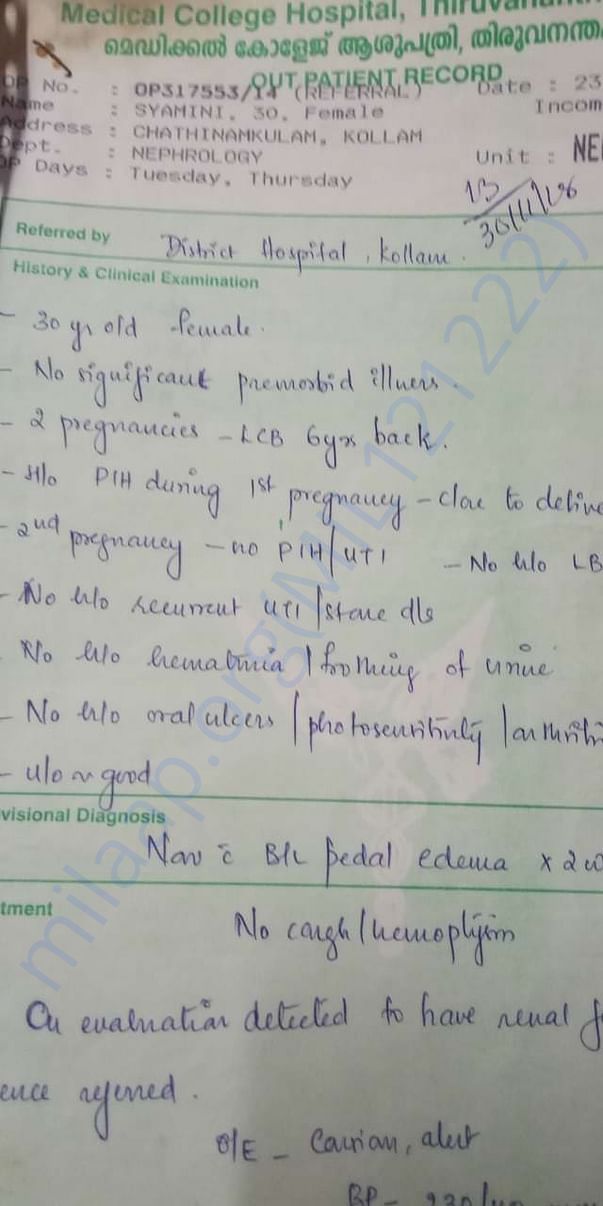 Medical College Hospital, Thiruvanantha
മെഡിക്കൽ കോളേജ് ആശുപത്രി, തിരുവനന്ത
OUT PATIENT RECORD
OP No. : OP317553/14 (REFERRAL) Date : 23
Name : SYAMINI, 30, Female Incom
Address : CHATHINAMKULAM, KOLLAM
Dept. : NEPHROLOGY Unit : NE
OP Days : Tuesday, Thursday
Referred by District Hospital, Kollam.
History & Clinical Examination
- 30 yr old female.
- No significant premorbid illness.
- 2 pregnancies - LCB 6yrs back.
- H/o PIH during 1st pregnancy - close to delive
- 2nd pregnancy - no PIH/UTI - No h/o LB
- No h/o recurrent UTI/stone ds
No h/o hematuria / frothing of urine
- No h/o oral ulcers / photosensitivity / arthriti
- u/o ~ good
visional Diagnosis
Now c̄ B/L pedal edema x 2 w
tment
No cough/hemoptysis
On evaluation detected to have renal f
ence referred.
O/E - Conscious, alert
BP -
milaap.org(MIL1212222)